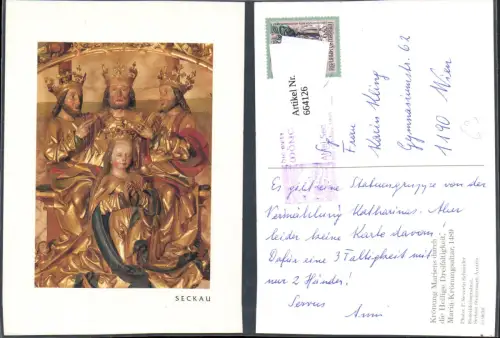 SECKAU
Artikel Nr.
664126
Frau
Karin Kling
Gymnasiumstr. 62
1190 Wien
Es gibt eine Statuengruppe von der
Vermählung Katharinas. Aber
leider keine Karte davon.
Dafür eine 3 Faltigkeit mit
nur 2 Händen!
Servus
Anni
Krönung Mariens durch
die Heilige Dreifaltigkeit,
Maria-Krönungsaltar, 1489